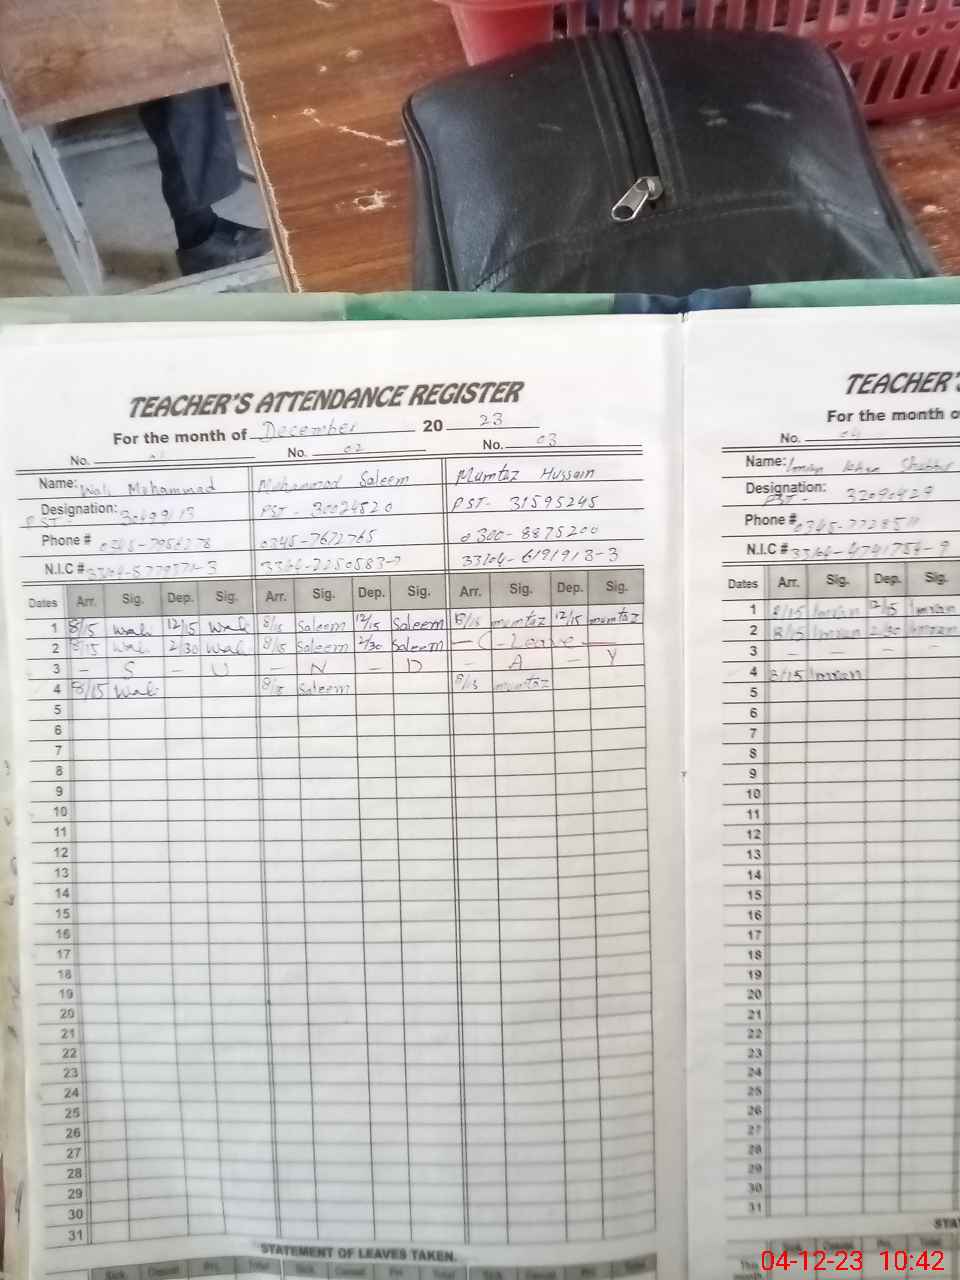 TEACHER'S ATTENDANCE REGISTER
For the month of December 20 23
No. 01 No. 02 No. 03
Name: Wali Mohammad Mohammad Saleem Mumtaz Hussain
Designation: PST - 30499113 PST - 30024520 PST - 31595245
Phone # 0345-7956278 0345-7672765 0300-8875200
N.I.C # 33104-6191913-3
Dates Arr. Sig. Dep. Sig. Arr. Sig. Dep. Sig. Arr. Sig. Dep. Sig.
1 8/15 Wali 12/15 Wali 8/15 Saleem 12/15 Saleem 8/15 mumtaz 12/15 mumtaz
2 8/15 Wali 2/30 Wali 8/15 Saleem 2/30 Saleem — C - Leave —
3 - S - U - N - D - A - Y
4 8/15 Wali 8/15 Saleem 8/15 mumtaz
5
6
7
8
9
10
11
12
13
14
15
16
17
18
19
20
21
22
23
24
25
26
27
28
29
30
31
STATEMENT OF LEAVES TAKEN.
Sick Casual Pri. Total Sick Casual Pri. Total Sick Casual Pri. Total
TEACHER'S
For the month o
No. 04
Name: Imran Khan
Designation: PST - 32090429
Phone # 0345-7728511
N.I.C # 33104-4741754-9
Dates Arr. Sig. Dep. Sig.
1 8/15 Imran 12/15 Imran
2 8/15 Imran 2/30 Imran
3 - - - -
4 8/15 Imran
5
6
7
8
9
10
11
12
13
14
15
16
17
18
19
20
21
22
23
24
25
26
27
28
29
30
31
STA
Sick Casual Pri. Total
This month
04-12-23 10:42